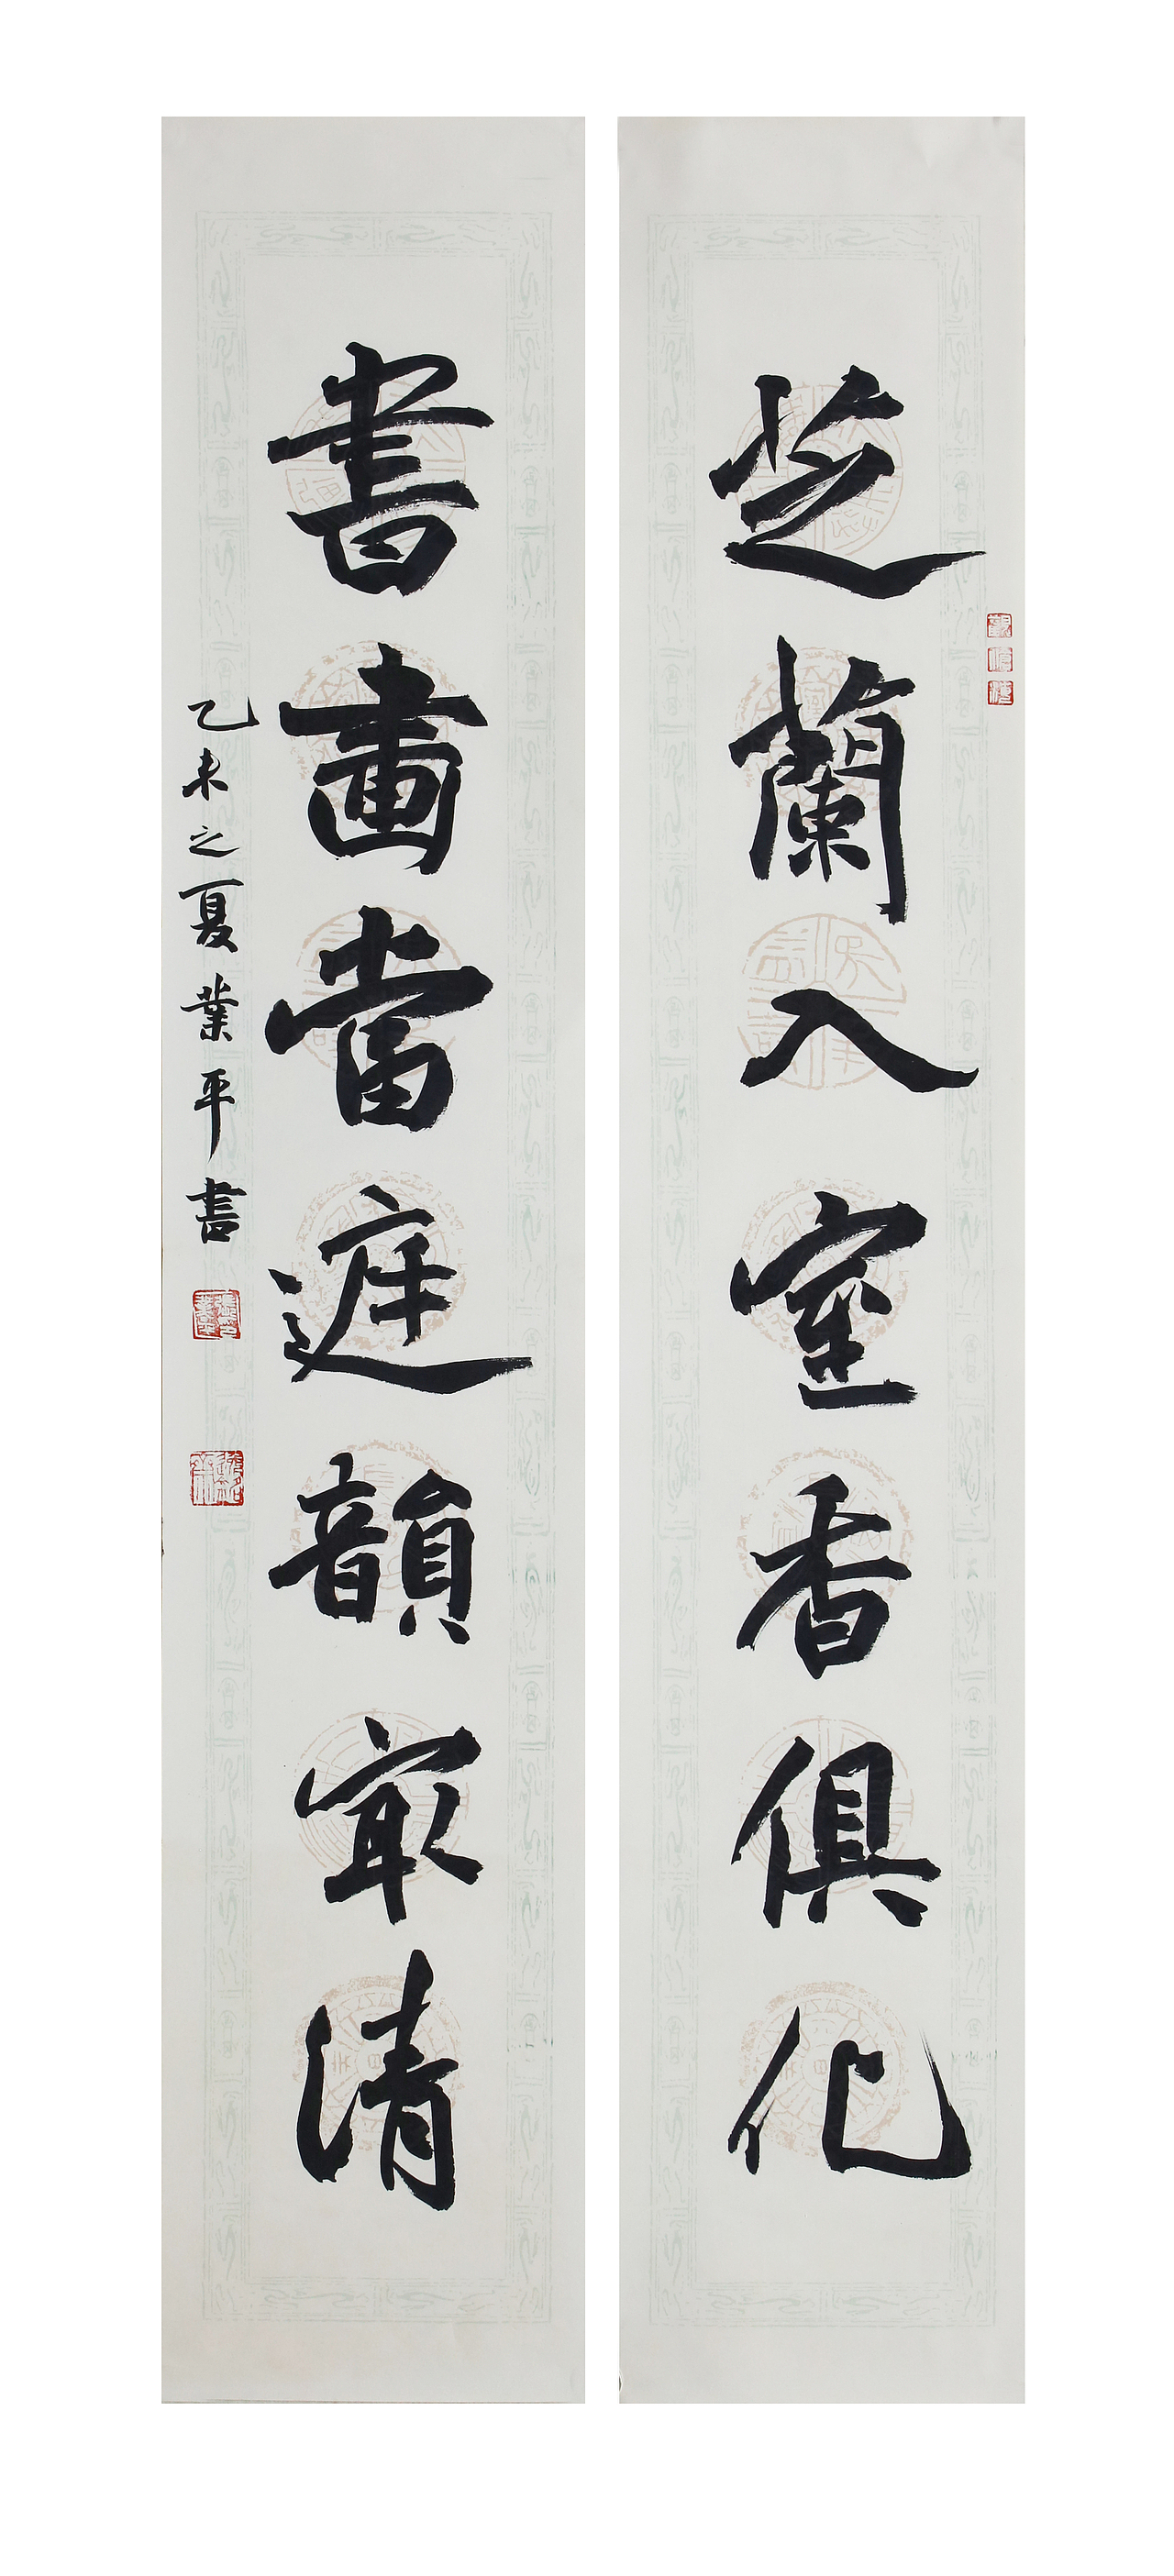 芝蘭入室香俱化
書畫當庭韻宼清
乙未之夏業平書